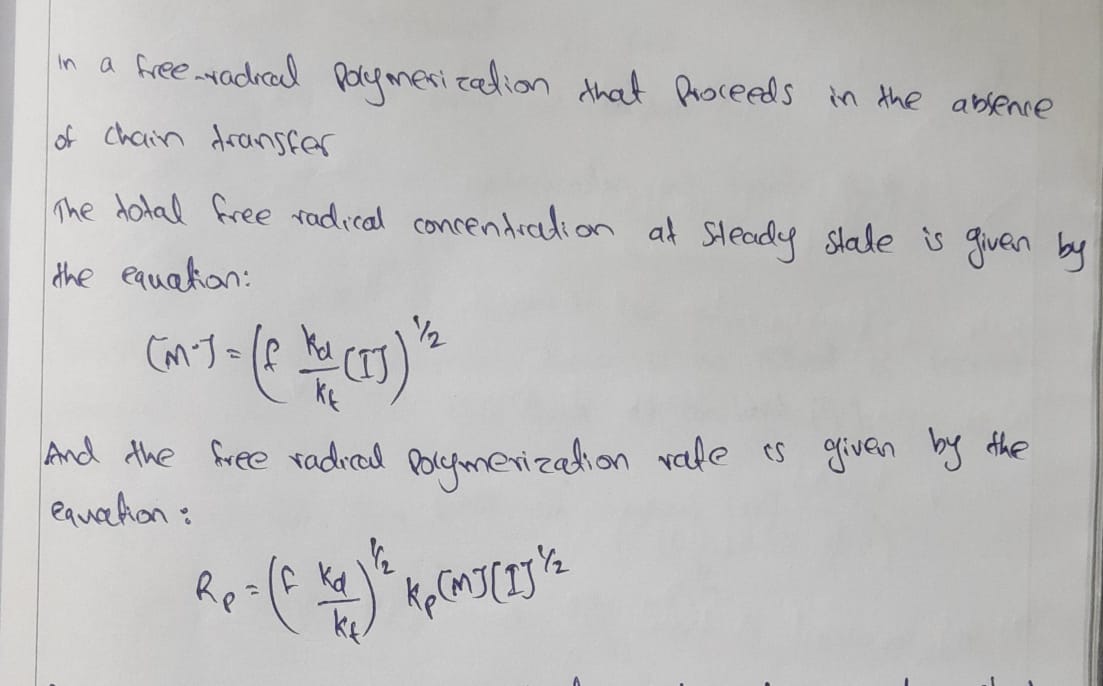 in a free-radical Polymerization that Proceeds in the absence
of chain transfer
The total free radical concentration at steady state is given by
the equation:
[M·] = (f kd/kt [I])^1/2
And the free radical Polymerization rate is given by the
equation:
Rp = (f kd/kt)^1/2 kp[M][I]^1/2